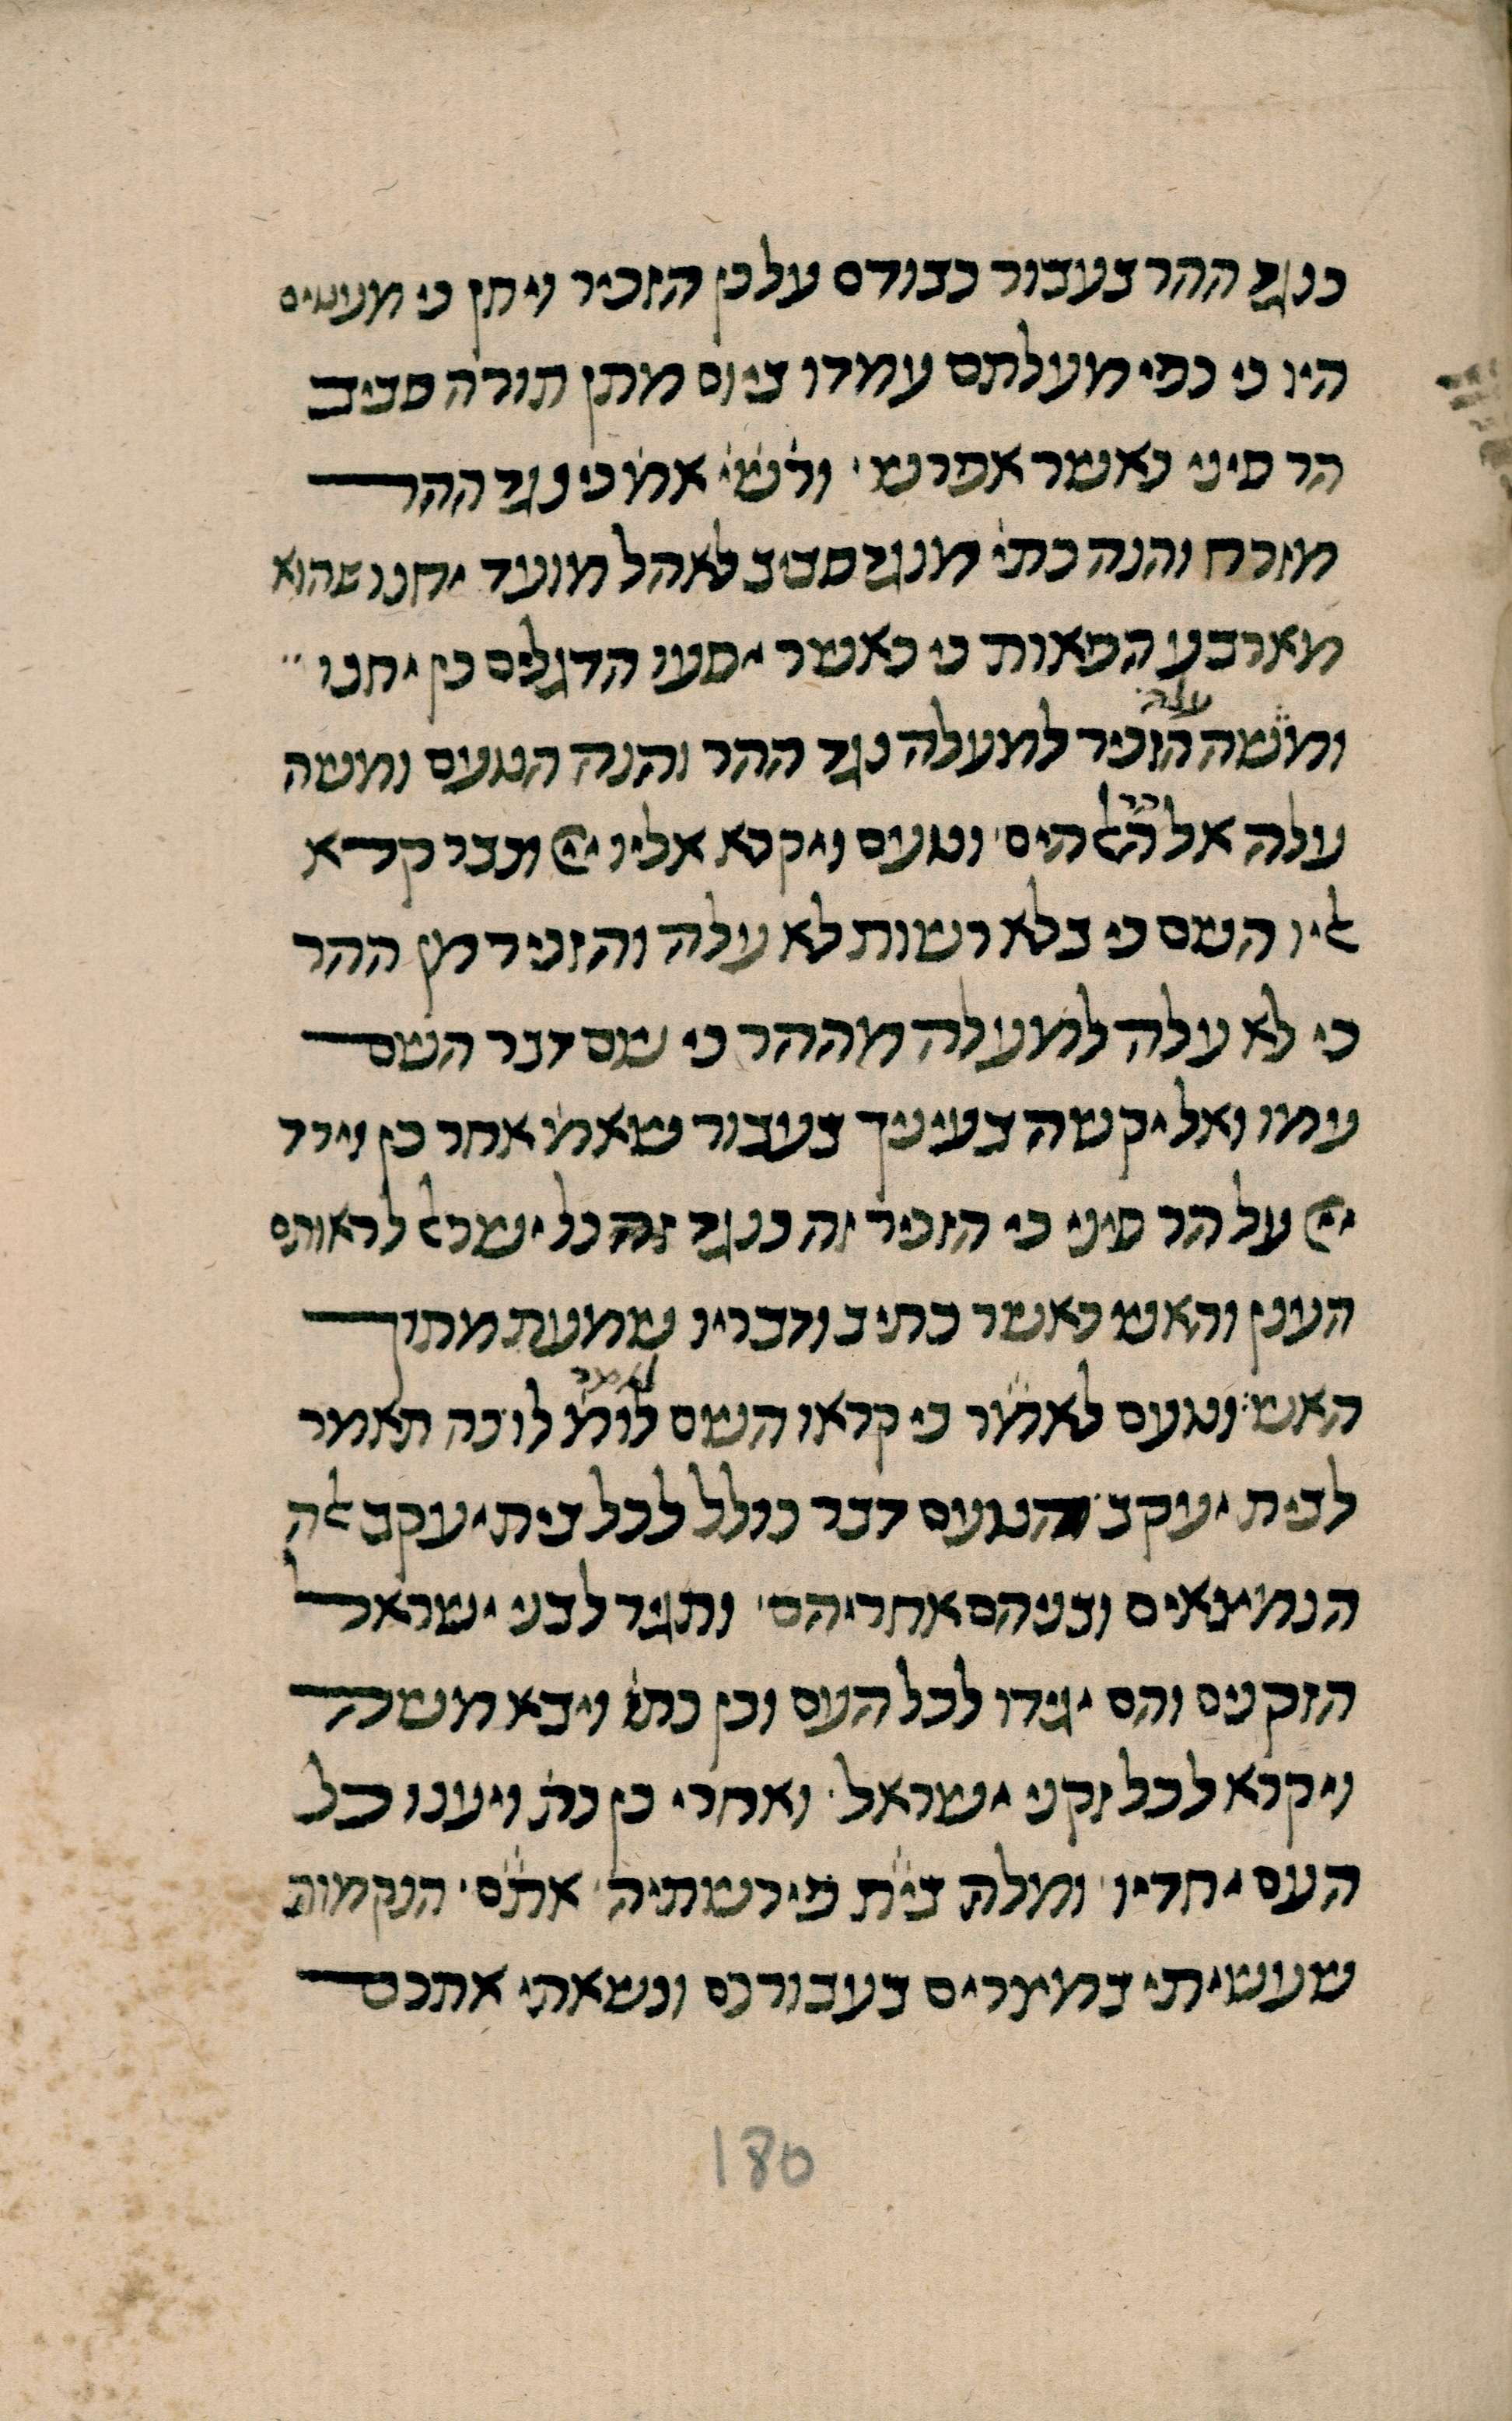 כנגד ההר בעבור כבודם על כן הזכיר ויחן כי מעטים
היו כי כפי מעלתם עמדו ביום מתן תורה סביב
הר סיני כאשר אפרש׳ ורש׳י אמ׳ כי נגד ההר
מזרח והנה כתי׳ מנגד סביב לאהל מועד יחנו שהוא
מארבע הפאות כי כאשר יסעו הדגלים כן יחנו ׳׳
ומשה עלה הזכיר למעלה נגד ההר והנה הטעם ומשה
עלה אל הר האלהים׳ וטעם ויקרא אליו יי׳ וכבר קרא
אליו השם כי בלא רשות לא עלה והזכיר מן ההר
כי לא עלה למעלה מההר כי שם דבר השם
עמו ואל יקשה בעיניך בעבור שאמ׳ אחר כן וירד
יי׳ על הר סיני כי הזכיר זה כנגד זה כל ישראל לראותם
הענן והאש כאשר כתיב ודבריו שמעת מתוך
האש׳ וטעם לאמר כי קראו השם לומ׳ לאמר לו כה תאמר
לבית יעקב׳ הטעם דבר כולל לכל בית יעקב אלה
הנמצאים ובניהם אחריהם׳ ותגיד לבני ישראל
הזקנים והם יגידו לכל העם וכן כתו׳ ויבא משה
ויקרא לכל זקני ישראל׳ ואחרי כן כת׳ ויענו כל
העם יחדיו׳ ומלת בית פירשתיה׳ אתם׳ הנקמות
שעשיתי במצרים בעבורכם ונשאתי אתכם
180